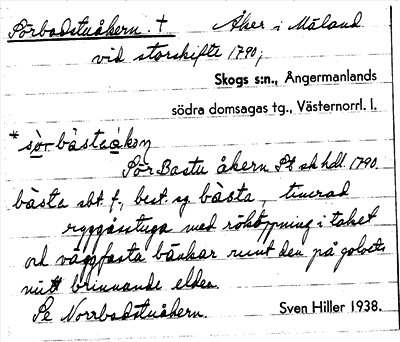 Sörbadstuåkern. † Åker i Måland
vid storskifte 1790;
Skogs s:n., Ångermanlands
södra domsagas tg., Västernorrl. l.
* sòrbàstaákəɳ
Sör Bastu åkern Stsk hdl. 1790.
bàsta sbt. f., best. sg. bàsta, timrad
ryggåsstuga med rököppning i taket
och väggfasta bänkar runt den på golvets
mitt brinnande elden.
Se Norrbadstuåkern. Sven Hiller 1938.